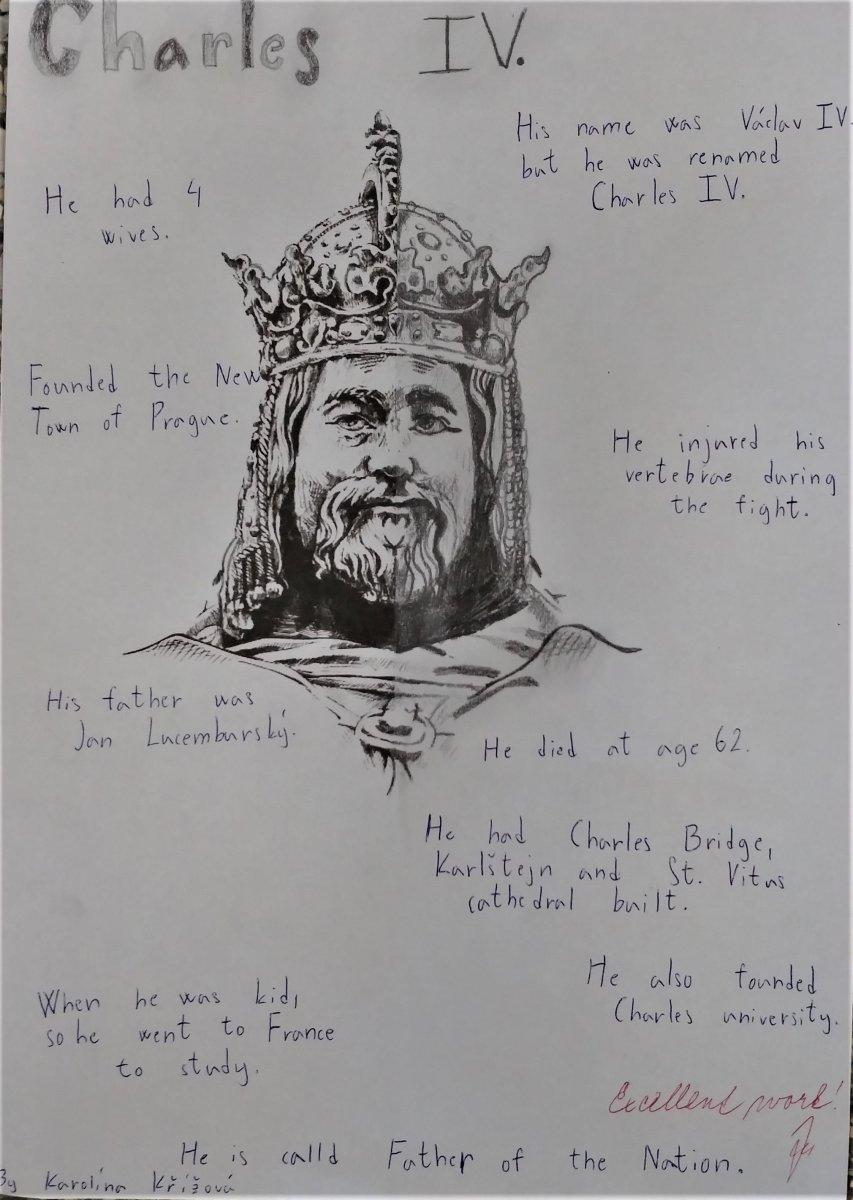 Charles IV.
His name was Václav IV.
but he was renamed
Charles IV.
He had 4
wives.
Founded the New
Town of Prague.
He injured his
vertebrae during
the fight.
His father was
Jan Lucemburský.
He died at age 62.
He had Charles Bridge,
Karlštejn and St. Vitus
cathedral built.
He also founded
Charles university.
When he was kid,
so he went to France
to study.
Excellent work!
He is calld Father of the Nation.
By Karolína Křížová